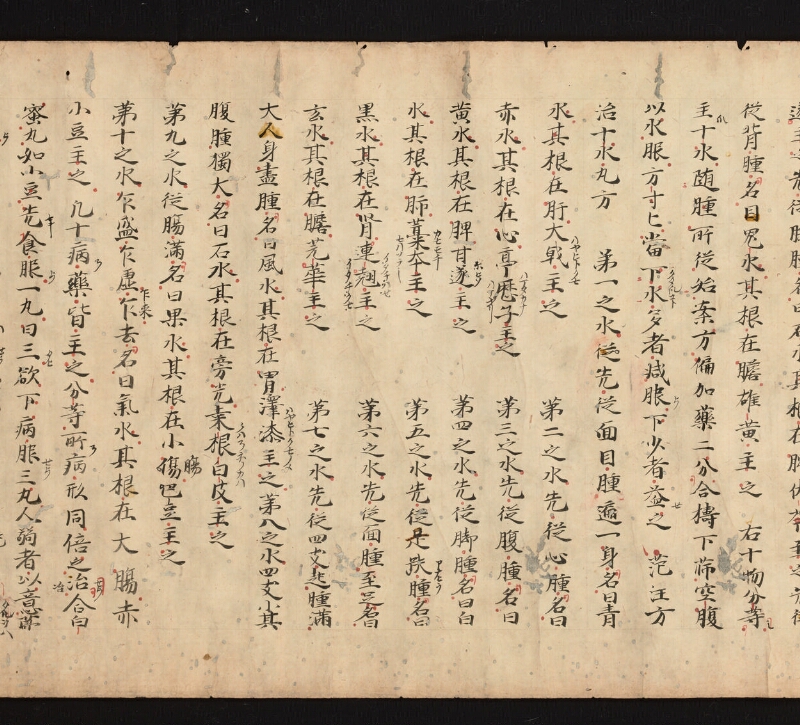 従背腫名曰鬼水其根在膽雄黄主之 右十物分等
主十水随腫所従始案方偏加藥二分合擣下篩空腹
以水服方寸匕當下水多者減服下少者益之 范汪方
治十水丸方 第一之水従先従面目腫遍一身名曰青
水其根在肝大戟主之 第二之水先従心腫名曰
赤水其根在心亭歴子主之 第三之水先従腹腫名曰
黄水其根在脾甘遂主之 第四之水先従脚腫名曰白
水其根在肺藁本主之 第五之水先従足趺腫名曰
黒水其根在腎連翹主之 第六之水先従面腫至足名曰
玄水其根在膽芫華主之 第七之水先従四支起腫滿
大人身盡腫名曰風水其根在胃澤漆主之 第八之水四支小其
腹腫獨大名曰石水其根在旁光桒根白皮主之
第九之水従腸滿名曰果水其根在小腸巴豆主之
第十之水乍盛乍虚乍去乍来名曰氣水其根在大腸赤
小豆主之 凡十病藥皆主之分等所病形同倍之治合白
蜜丸如小豆先食服一丸日三欲下病服三丸人弱者以意